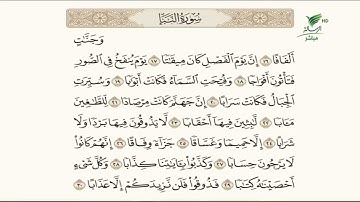 سُورَةُ النَّبَإِ
وَجَنَّٰتٍ
أَلْفَافًا ١٦ إِنَّ يَوْمَ ٱلْفَصْلِ كَانَ مِيقَٰتًا ١٧ يَوْمَ يُنفَخُ فِى ٱلصُّورِ
فَتَأْتُونَ أَفْوَاجًا ١٨ وَفُتِحَتِ ٱلسَّمَآءُ فَكَانَتْ أَبْوَٰبًا ١٩ وَسُيِّرَتِ
ٱلْجِبَالُ فَكَانَتْ سَرَابًا ٢٠ إِنَّ جَهَنَّمَ كَانَتْ مِرْصَادًا ٢١ لِّلطَّٰغِينَ
مَـَٔابًا ٢٢ لَّٰبِثِينَ فِيهَآ أَحْقَابًا ٢٣ لَّا يَذُوقُونَ فِيهَا بَرْدًا وَلَا
شَرَابًا ٢٤ إِلَّا حَمِيمًا وَغَسَّاقًا ٢٥ جَزَآءً وِفَاقًا ٢٦ إِنَّهُمْ كَانُوا۟
لَا يَرْجُونَ حِسَابًا ٢٧ وَكَذَّبُوا۟ بِـَٔايَٰتِنَا كِذَّابًا ٢٨ وَكُلَّ شَىْءٍ
أَحْصَيْنَٰهُ كِتَٰبًا ٢٩ فَذُوقُوا۟ فَلَن نَّزِيدَكُمْ إِلَّا عَذَابًا ٣٠
HD
مباشر